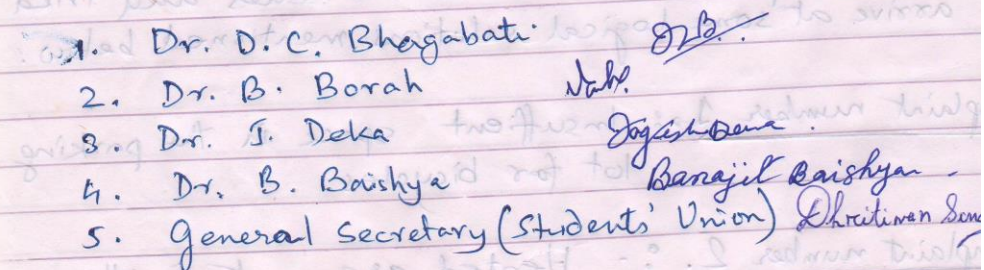 1. Dr. D. C. Bhagabati
2. Dr. B. Borah
3. Dr. J. Deka Jogesh Deka.
4. Dr. B. Baishya Banajit Baishya
5. General Secretary (Students' Union) Dhritiman